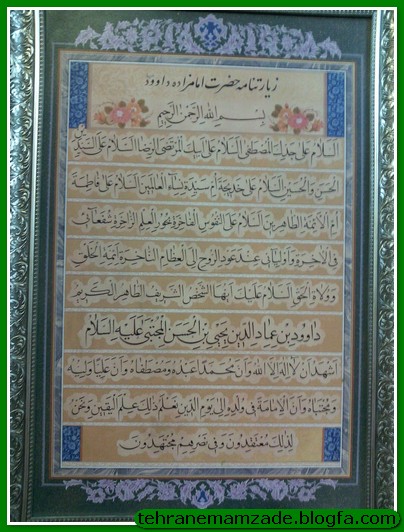 زیارتنامه حضرت امامزاده داوود
بِسْمِ اللهِ الرَّحْمنِ الرَّحِیمِ
اَلسَّلامُ عَلی جَدِّكَ الْمُصْطَفی اَلسَّلامُ عَلی اَبیكَ الْمُرْتَضَی الرِّضا اَلسَّلامُ عَلَی السَّیِّدَیْنِ
الْحَسَنِ وَالْحُسَیْنِ اَلسَّلامُ عَلی خَدیجَةَ اُمِّ سَیِّدَةِ نِسآءِ الْعالَمینَ اَلسَّلامُ عَلی فاطِمَةَ
اُمِّ الْاَئِمَّةِ الطّاهِرینَ اَلسَّلامُ عَلَی النُّفُوسِ الْفاخِرَةِ بُحُورِ الْعُلُومِ الزّاخِرَةِ شُفَعآئی
فِی الْاخِرَةِ وَاَوْلِیآئی عِنْدَ عَوْدِ الرُّوحِ اِلَی الْعِظامِ النّاخِرَةِ اَئِمَّةِ الْخَلْقِ
وَوُلاةِ الْحَقِّ اَلسَّلامُ عَلَیْكَ اَیُّهَا الشَّخْصُ الشَّریفُ الطّاهِرُ الْكَریمُ
داوود بن عِمادِ الدّینِ یَحْیَی بْنِ الْحَسَنِ الْمُجْتَبی عَلَیْهِ السَّلامُ
اَشْهَدُ اَنْ لا اِلهَ اِلَّا اللهُ وَاَنَّ مُحَمَّدًا عَبْدُهُ وَمُصْطَفاهُ وَاَنَّ عَلِیًّا وَلِیُّهُ
وَمُجْتَباهُ وَاَنَّ الْاِمامَةَ فی وُلْدِهِ اِلی یَوْمِ الدّینِ نَعْلَمُ ذلِكَ عِلْمَ الْیَقینِ وَنَحْنُ
لِذلِكَ مُعْتَقِدُونَ وَفی نَصْرِهِمْ مُجْتَهِدُونَ
tehranemamzade.blogfa.com